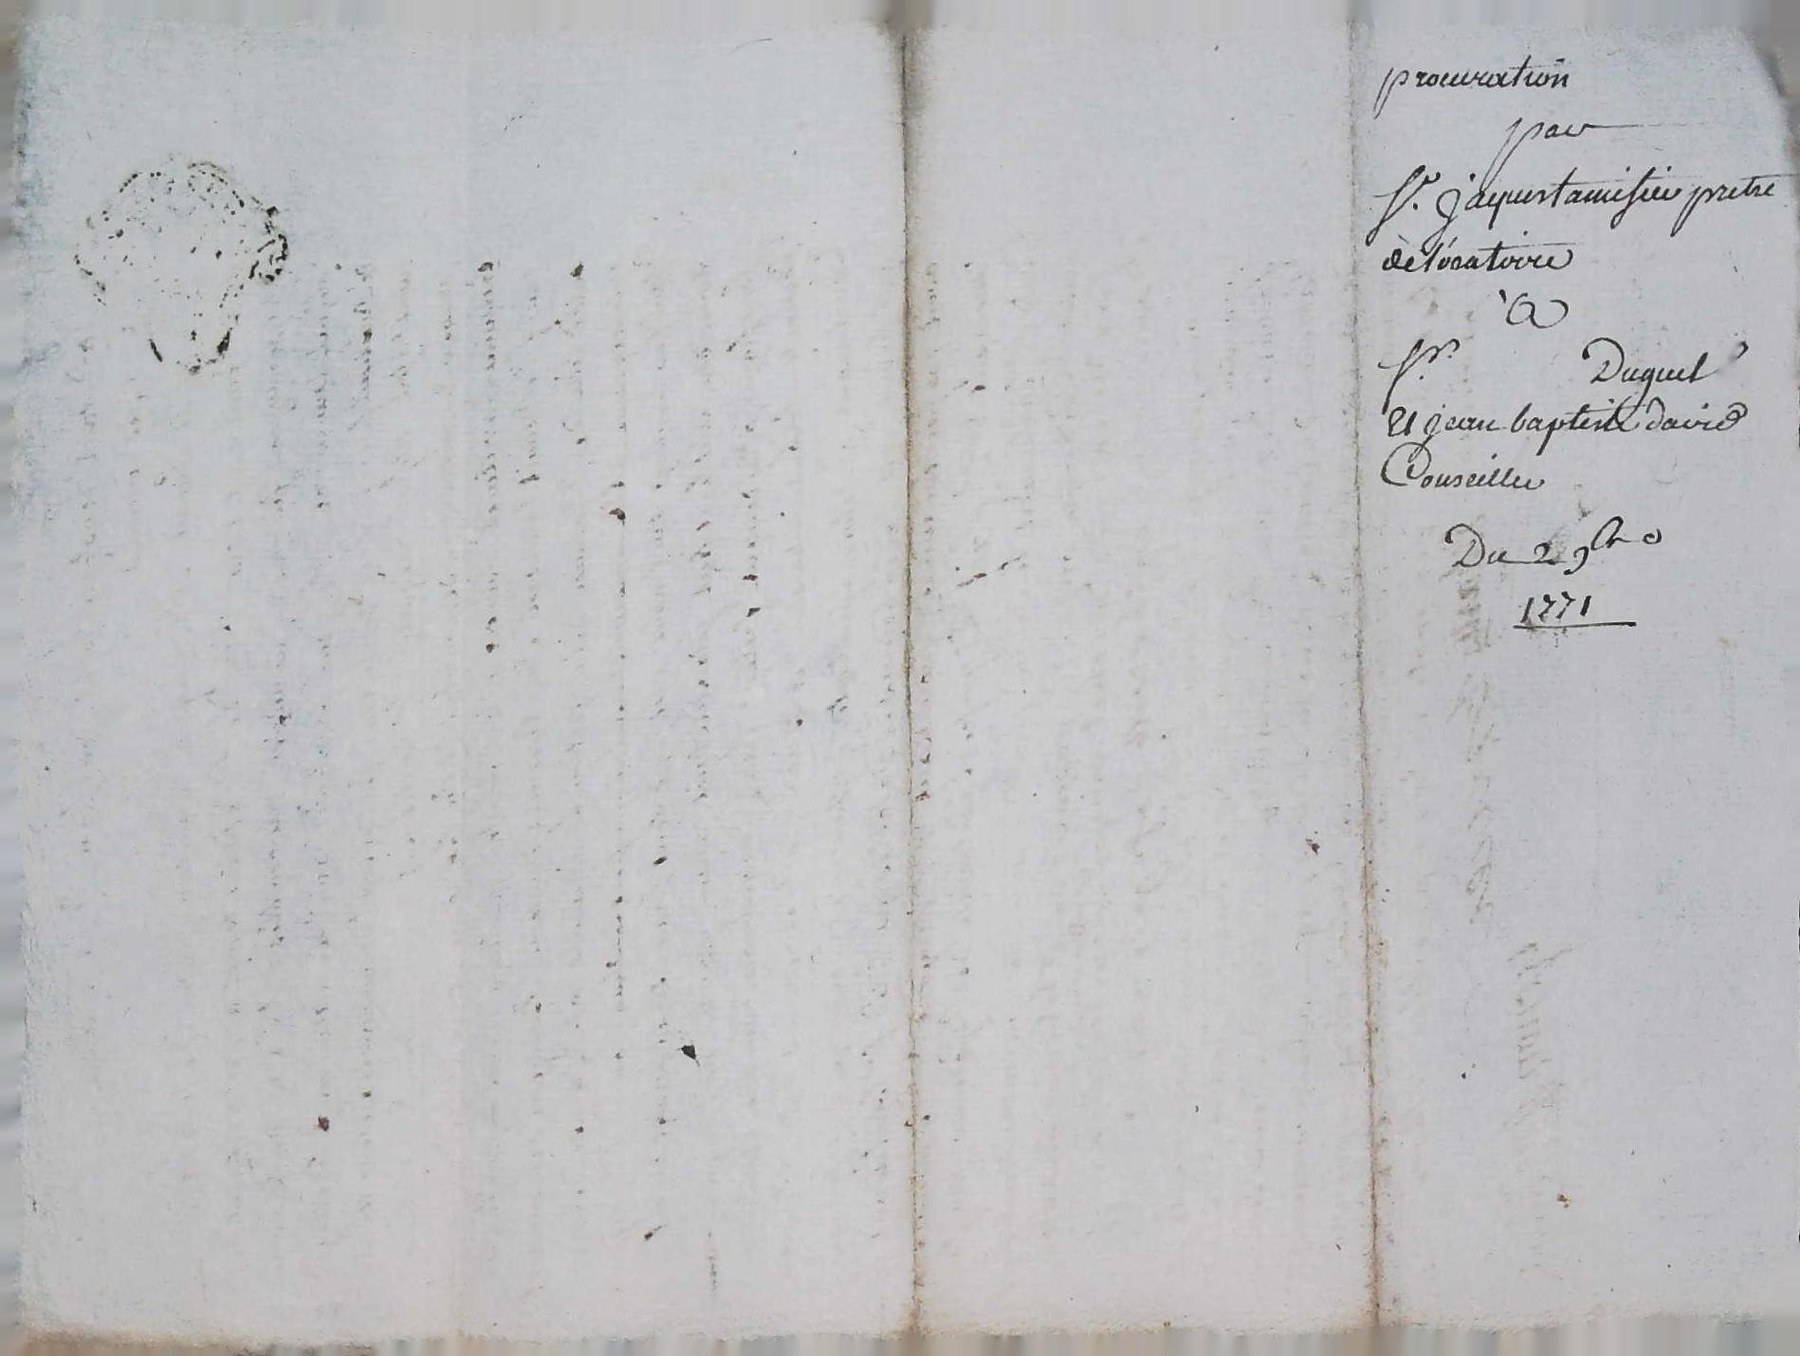 procuration
par
Sr. jaques tamisier pretre
de l'oratoire
à
Sr. Duguet
Et jean baptiste david
Conseiller
Du 2 9bre
1771